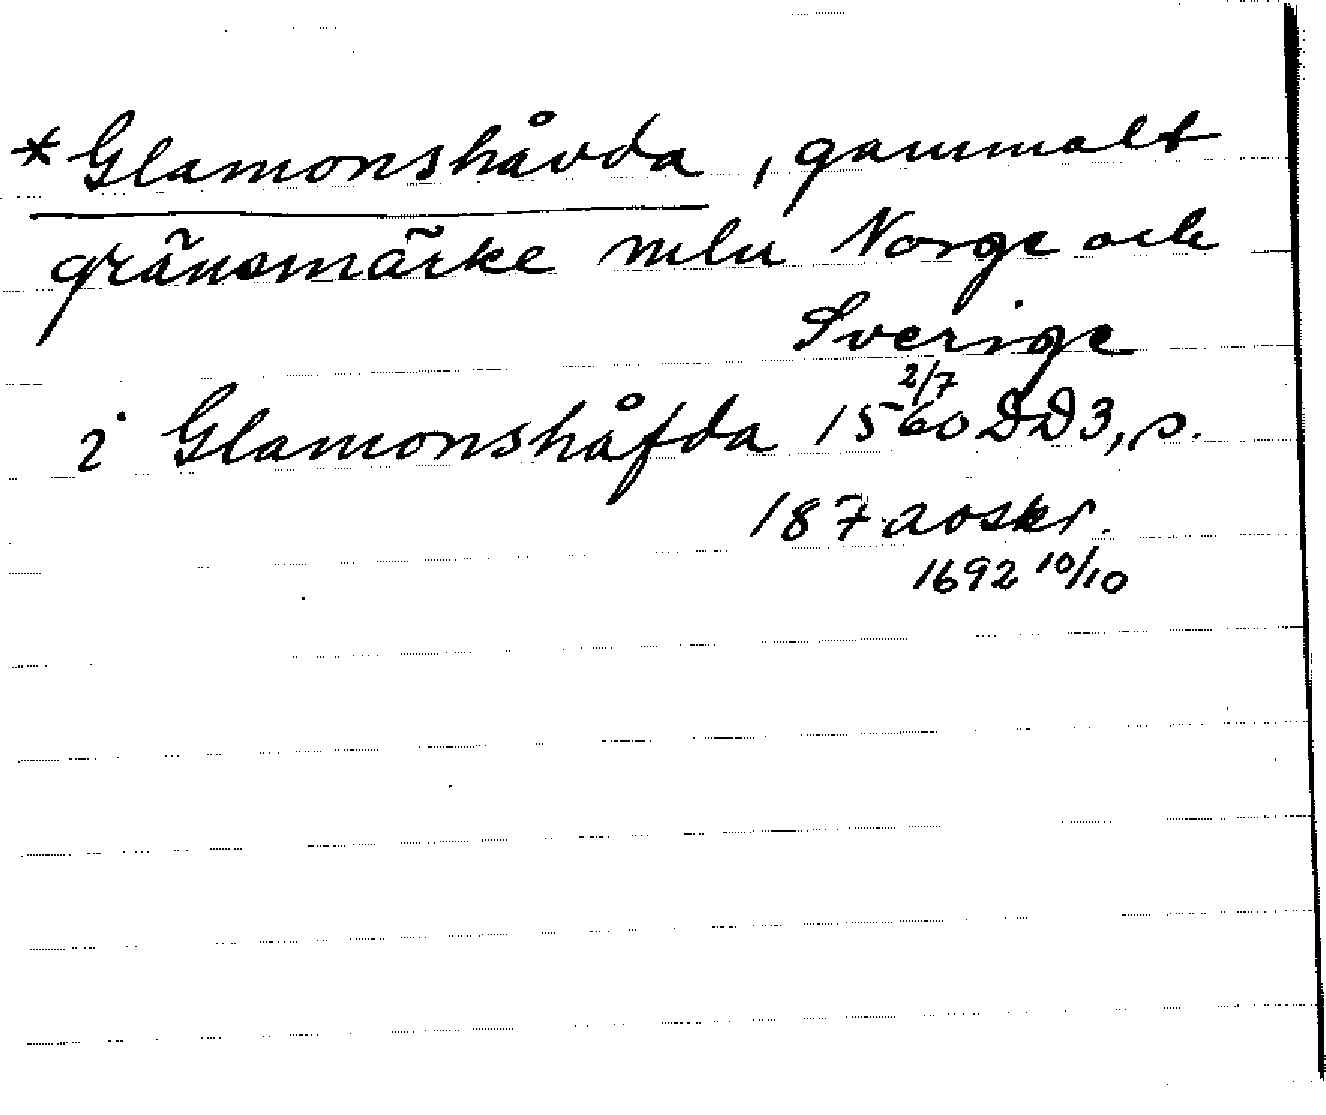 *Glamonshåvda, gammalt
gränsmärke mln Norge och
Sverige
i Glamonshåfda 1560 2/7 DD3, s.
187 avskr.
1692 10/10